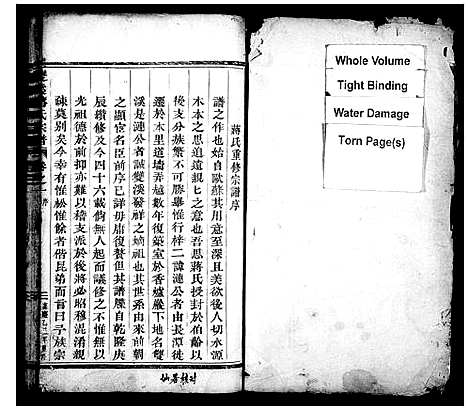 蔣氏重修宗譜序
譜之作也始自歐蘇其用意至深且美欲後人切水源
木本之思追遠親上之意也吾思蔣氏授封於伯齡以
後支分族繁不可勝舉惟行梓二諱漣公者由長潭徙
遷於木里道墙弄越數年復築室於香爐巖下地名雙
溪是漣公者誠雙溪發祥之始祖也其世系由來前朝
之顯宦名臣前序已詳毋庸復贅但其譜牒自乾隆庚
辰續修及今四十六載倘無人起而議修之不惟無以
光祖德於前抑亦難以稽支派於後將必昭穆混淆親
疎莫別矣今幸有惟於惟餘者偕昆弟而言曰予族宗
Whole Volume
Tight Binding
Water Damage
Torn Page(s)